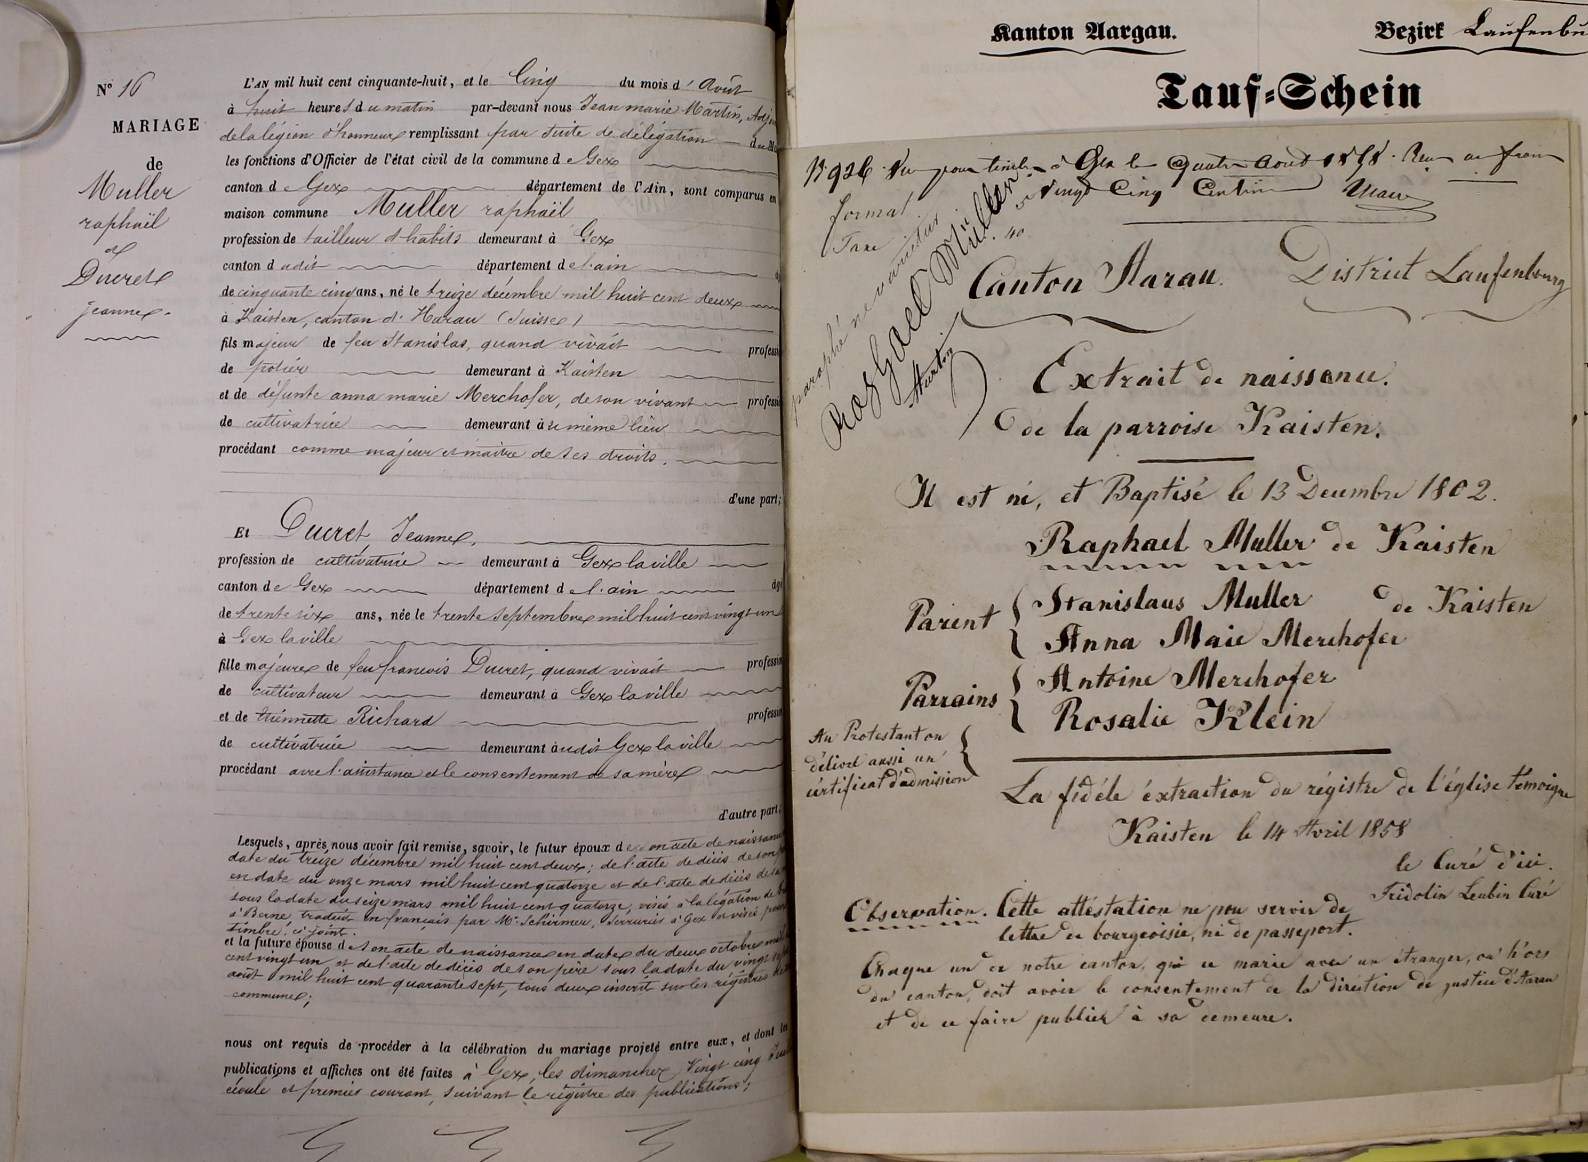 N° 16
MARIAGE
de
Muller
raphaël
et
Ducret
jeanne.
L'AN mil huit cent cinquante-huit, et le Cinq du mois d'Août
à huit heures du matin par-devant nous Jean marie Martin, Adj
de la légion d'honneur remplissant par suite de délégation du
les fonctions d'Officier de l'état civil de la commune de Gex
canton de Gex département de l'Ain, sont comparus en
maison commune Muller raphaël
profession de tailleur d'habits demeurant à Gex
canton dudit département de l'ain
de cinquante cinq ans, né le treize décembre mil huit cent deux
à Kaisten, canton d'Harau (Suisse)
fils majeur de feu Stanislas, quand vivait professi
de potier demeurant à Kaisten
et de défunte anna marie Merchofer, de son vivant professi
de cultivatrice demeurant au même lieu
procédant comme majeur et maître de ses droits.
d'une part;
Et Ducret Jeanne.
profession de cultivatrice demeurant à Gex la ville
canton de Gex département de l'ain âgé
de trente six ans, née le trente septembre mil huit cent vingt un
à Gex la ville
fille majeure de feu francois Ducret, quand vivait professio
de cultivateur demeurant à Gex la ville
et de étiennette Richard profession
de cultivatrice demeurant audit Gex la ville
procédant avec l'assistance et le consentement de sa mère
d'autre part;
Lesquels, après nous avoir fait remise, savoir, le futur époux de son acte de naissance
date du treize décembre mil huit cent deux; de l'acte de décès de son
en date du onze mars mil huit cent quatorze et de l'acte de décès de sa
sous la date du seize mars mil huit cent quatorze, visés à la légation de
à Berne, traduit en français par Mr Schirmer, serrurier à Gex et visé pour
timbre, ci joint.
et la future épouse de son acte de naissance en date du deux octobre mil
cent vingt un et de l'acte de décès de son père sous la date du vingt
août mil huit cent quarante sept, tous deux inscrit sur les registres de
commune;
nous ont requis de procéder à la célébration du mariage projeté entre eux, et dont les
publications et affiches ont été faites à Gex, les dimanches vingt cinq
écoulé et premier courant, suivant le registre des publications;
Kanton Aargau. Bezirk Laufenbu
Tauf-Schein
N 926. Vu pour timbre à Gex le quatre Août 1858. Reçu
format vingt cinq Centimes
Taxe 40
paraphé ne varietur
Raphael Müller
Martin
Canton Aarau. District Laufenbourg
Extrait de naissance.
de la parroise Kaisten.
Il est né, et Baptisé le 13 Decembre 1802.
Raphael Muller de Kaisten
Parent { Stanislaus Muller de Kaisten
Anna Maie Merchofer
Parrains { Antoine Merchofer
Rosalie Klein
Au Protestant on
délivre aussi un
certificat d'admission
La fidéle éxtraction du régistre de l'église témoigne
Kaisten le 14 Avril 1858
le Curé d'ici.
Fridolin Leubin Curé
Observation. Cette attéstation ne peu servir de
lettre de bourgeoisie, ni de passeport.
Chaque un de notre canton, qui ce marie avec un étranger, ou h'ors
du canton, doit avoir le consentement de la diréction de justice d'Aarau
et de ce faire publier à sa demeure.